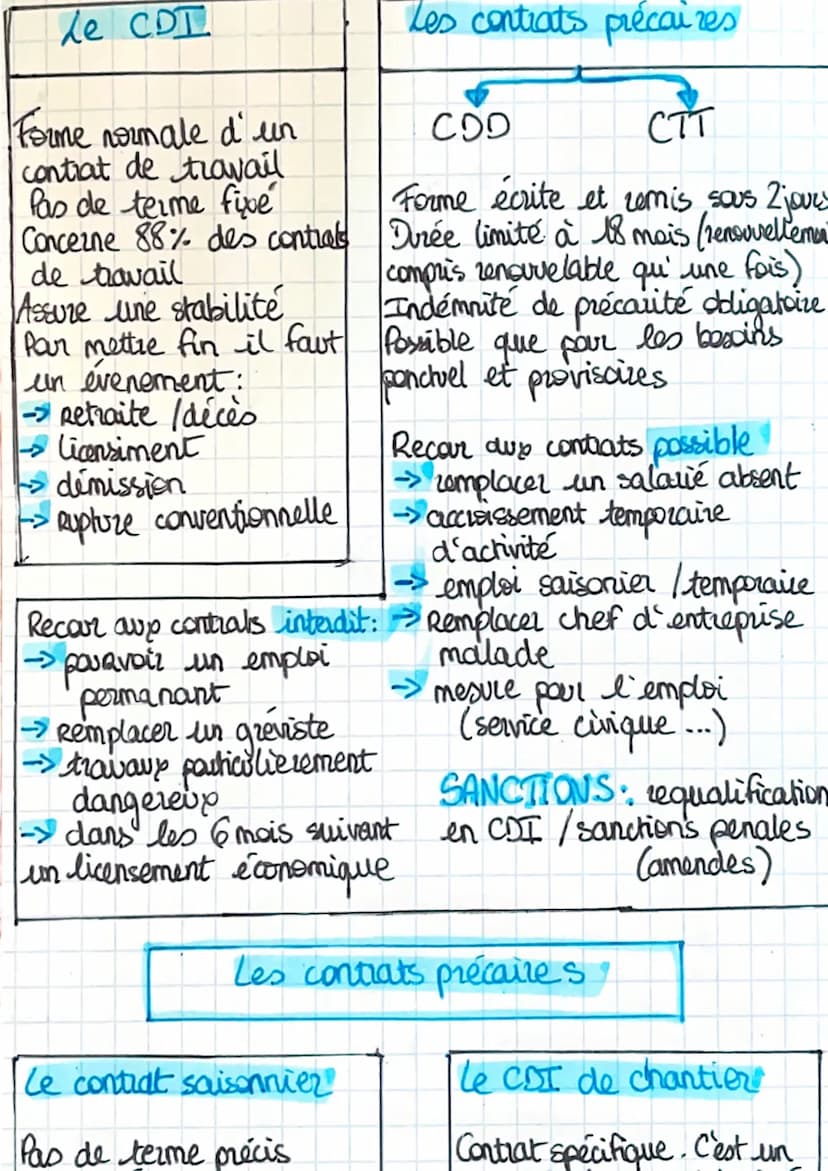 Le CDI
Forme normale d'un
contrat de travail
Pas de terme fixé
Concerne 88% des contrats
de travail
Assure une stabilité
Pour mettre fin il faut
un évenement :
→ Retraite / décès
→ licensiment
→ démission
→ Rupture conventionnelle
Les contrats précaires
CDD CTT
Forme écrite et remis sous 2 jours
Durée limité à 18 mois (renouvellemen
compris renouvelable qu'une fois)
Indémnité de précarité obligatoire
Possible que pour les besoins
ponctuel et provisoires
Recour aux contrats possible
→ remplacer un salarié absent
→ accroissement temporaire
d'activité
→ emploi saisonier / temporaire
→ Remplacer chef d'entreprise
malade
→ mesure pour l'emploi
(service civique ...)
SANCTIONS : requalification
en CDI / sanctions penales
(amendes)
Recour aux contrats interdit :
→ pouvoir un emploi
permanant
→ Remplacer un gréviste
→ travaux particulierement
dangereux
→ dans les 6 mois suivant
un licensement économique
Les contrats précaires
Le contrat saisonnier
Pas de terme précis
Le CDI de chantier
Contrat spécifique. C'est un